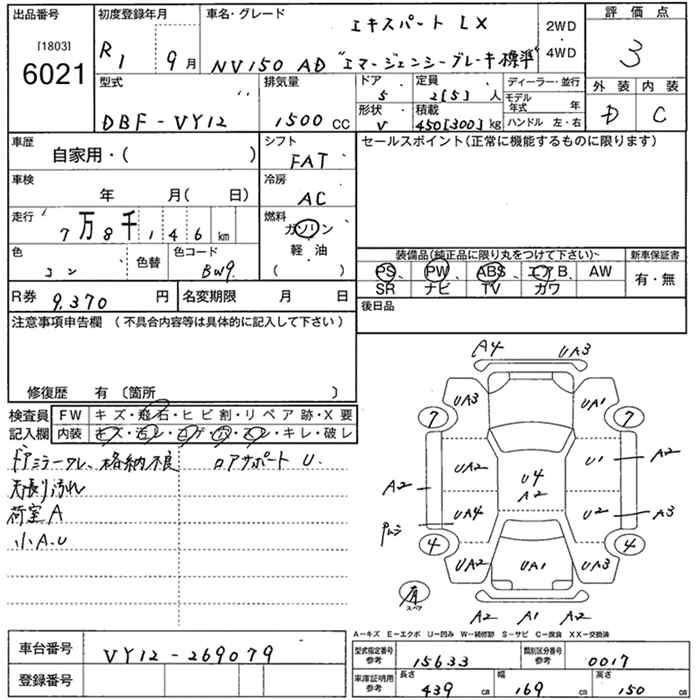 出品番号 初度登録年月 車名・グレード エキスパート LX 2WD・4WD 評価点
[1803] 6021 R1 9月 NV150 AD "エマージェンシーブレーキ標準" 3
型式 排気量 ドア 5 定員 2[5]人 ディーラー・並行 外装 内装
モデル年式 年
DBF-VY12 1500 CC 形状 V 積載 450[300]kg ハンドル 左・右 D C
車歴 シフト セールスポイント(正常に機能するものに限ります)
自家用・( ) FAT
車検 冷房
年 月( 日) AC
走行 燃料
7万8千146km ガソリン
色 色替 色コード 軽・油 装備品(純正品に限り丸をつけて下さい) 新車保証書
コン BW9 ( ) PS PW ABS エアB AW 有・無
SR ナビ TV カワ
R券 9,370円 名変期限 月 日 後日品
注意事項申告欄 (不具合内容等は具体的に記入して下さい)
修復歴 有 〔箇所 〕
検査員 FW キズ・飛石・ヒビ割・リペア跡・X要
記入欄 内装 キズ・汚レ・コゲ・穴・スレ・キレ・破レ
ドアミラーワレ、格納不良 ロアサポート U.
天張り汚れ
荷室 A
小A.U
A4 UA3
UA3 UA1
7 7
UA2 U4 U1 A2
A2 A2
UA4 U2 A3
4 4
UA2 UA1 UA3
有 スペア
A2 A1 A2
A−キズ E−エクボ U−凹み W−補修跡 S−サビ C−腐食 XX−交換済
車台番号 VY12-269079 型式指定番号 参考 15633 類別区分番号 参考 0017
登録番号 車庫証明用 参考 長さ 439 cm 幅 169 cm 高さ 150 cm